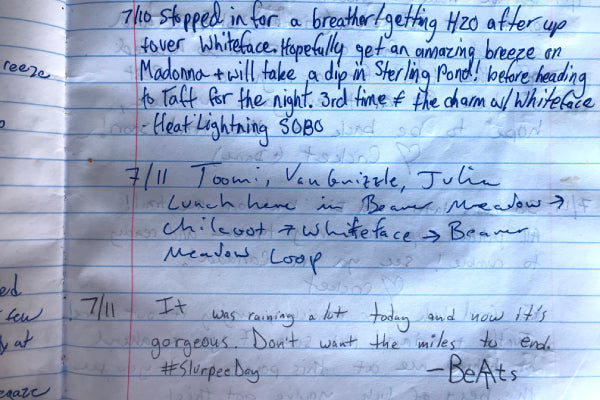 7/10 Stopped in for a breather/getting H2O after up
+over Whiteface. Hopefully get an amazing breeze on
reeze
Madonna + will take a dip in Sterling Pond! before heading
to Taft for the night. 3rd time # the charm w/ Whiteface
- Heat Lightning SOBO
7/11 Toomi, VanGuizzle, Julia
Lunch here in Beaver Meadow →
Chilcoot → Whiteface → Beaver
Meadow Loop
ed
few
at
7/11 It was raining a lot today and now it's
gorgeous. Don't want the miles to end.
#SlurpeeDay - BeAts